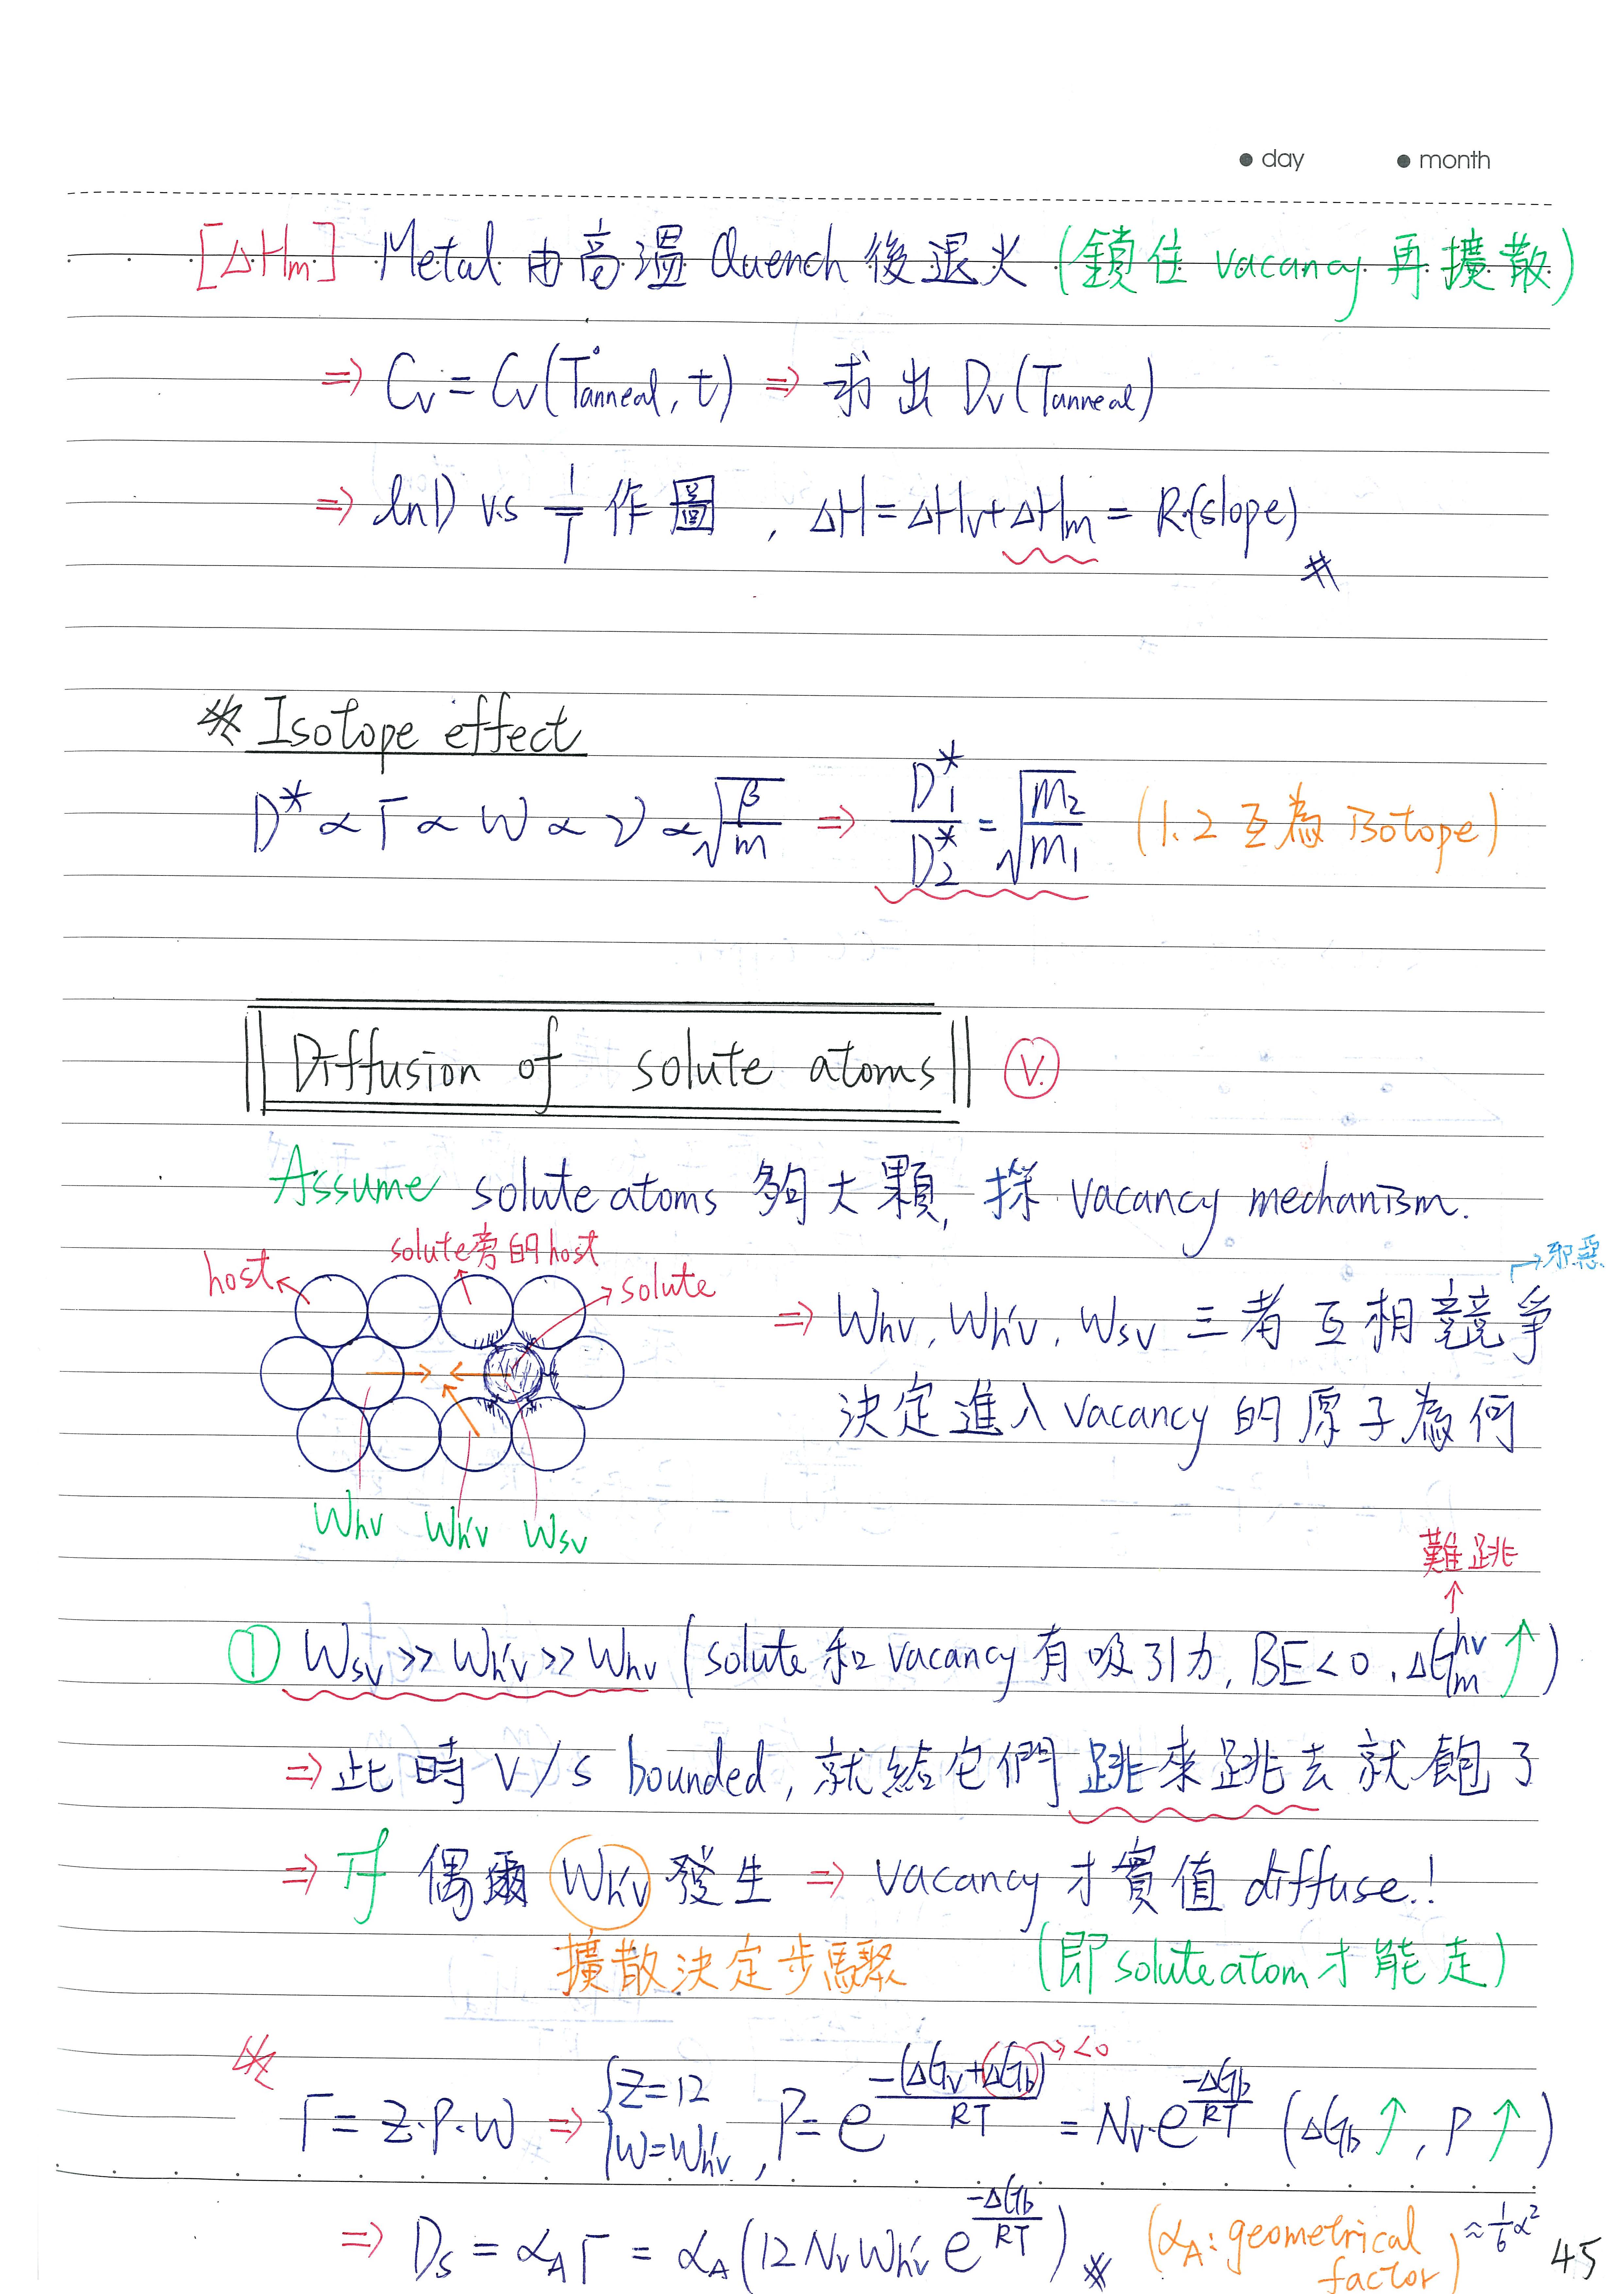 ● day ● month
[ΔHm] Metal 由高溫 Quench 後退火 (鎖住 vacancy 再擴散)
⇒ Cv = Cv(Tanneal, t) ⇒ 求出 Dv(Tanneal)
⇒ lnD v.s 1/T 作圖, ΔH = ΔHv + ΔHm = R·(slope) #
※ Isotope effect
D* ∝ Γ ∝ W ∝ ν ∝ √(β/m) ⇒ D1*/D2* = √(m2/m1) (1.2 互為 Isotope)
Diffusion of solute atoms V.
Assume solute atoms 夠大顆, 採 vacancy mechanism.
→邪惡
host solute旁的host solute
⇒ Whv, Wh'v, Wsv 三者互相競爭
決定進入 vacancy 的原子為何
Whv Wh'v Wsv
難跳
① Wsv >> Wh'v >> Whv (solute 和 vacancy 有吸引力, BE<0, ΔGm^hv ↑)
⇒ 此時 V/S bounded, 就給它們跳來跳去就飽了
⇒ If 偶爾 Wh'v 發生 ⇒ vacancy 才實值 diffuse!
擴散決定步驟 (即 solute atom 才能走)
→<0
※ Γ = Z·P·W ⇒ { Z=12, W=Wh'v, P = e^(-(ΔGv+ΔGb)/RT) = Nv·e^(-ΔGb/RT) (ΔGb ↑, P ↑)
⇒ Ds = αAΓ = αA(12 Nv Wh'v e^(-ΔGb/RT)) ※ (αA: geometrical factor) ≈ 1/6 α²
45